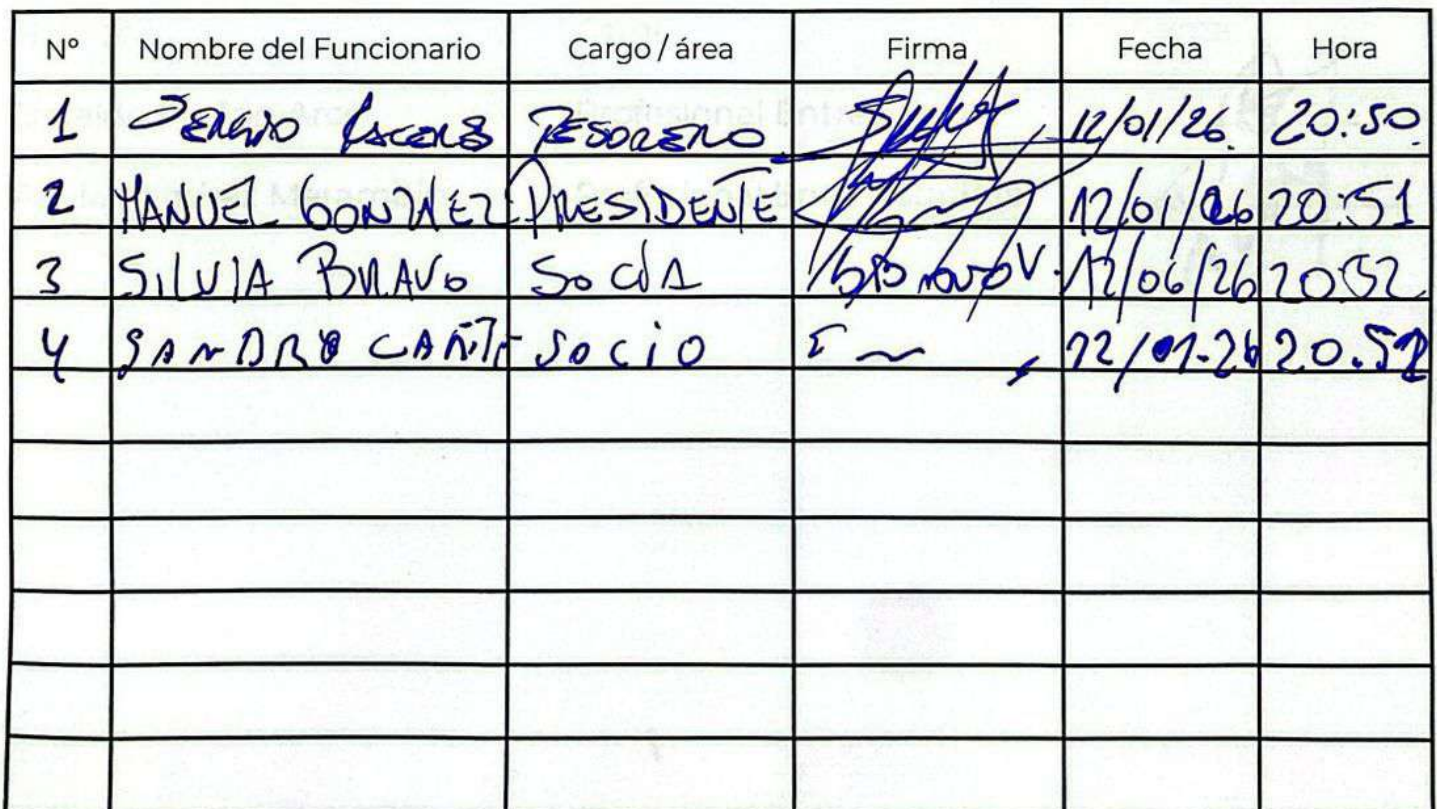 Nº Nombre del Funcionario Cargo / área Firma Fecha Hora
1 SERGIO TESORERO 12/01/26. 20:50
2 MANUEL GONZALEZ PRESIDENTE 12/01/26 20:51
3 SILVIA BRAVO SOCIA 12/06/26 20:52
4 SANDRO CAÑTE SOCIO 12/01-26 20.52